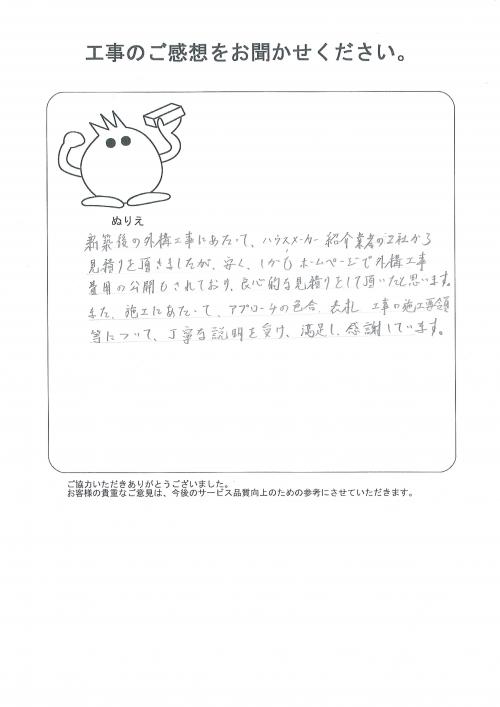 工事のご感想をお聞かせください。
ぬりえ
新築後の外構工事にあたって、ハウスメーカー紹介業者の2社から
見積りを頂きましたが、安く、しかもホームページで外構工事
費用の公開もされており、良心的な見積りをして頂いたと思います。
また、施工にあたって、アプローチの色合、表札、工事の施工要領
等について、丁寧な説明を受け、満足し、感謝しています。
ご協力いただきありがとうございました。
お客様の貴重なご意見は、今後のサービス品質向上のための参考にさせていただきます。